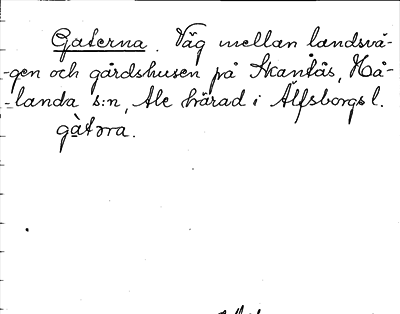 Gaterna. Väg mellan landsvä-
-gen och gårdshusen på Skantås, Hå-
-landa s:n, Ale härad i Älfsborgs l.
gàtɔra.